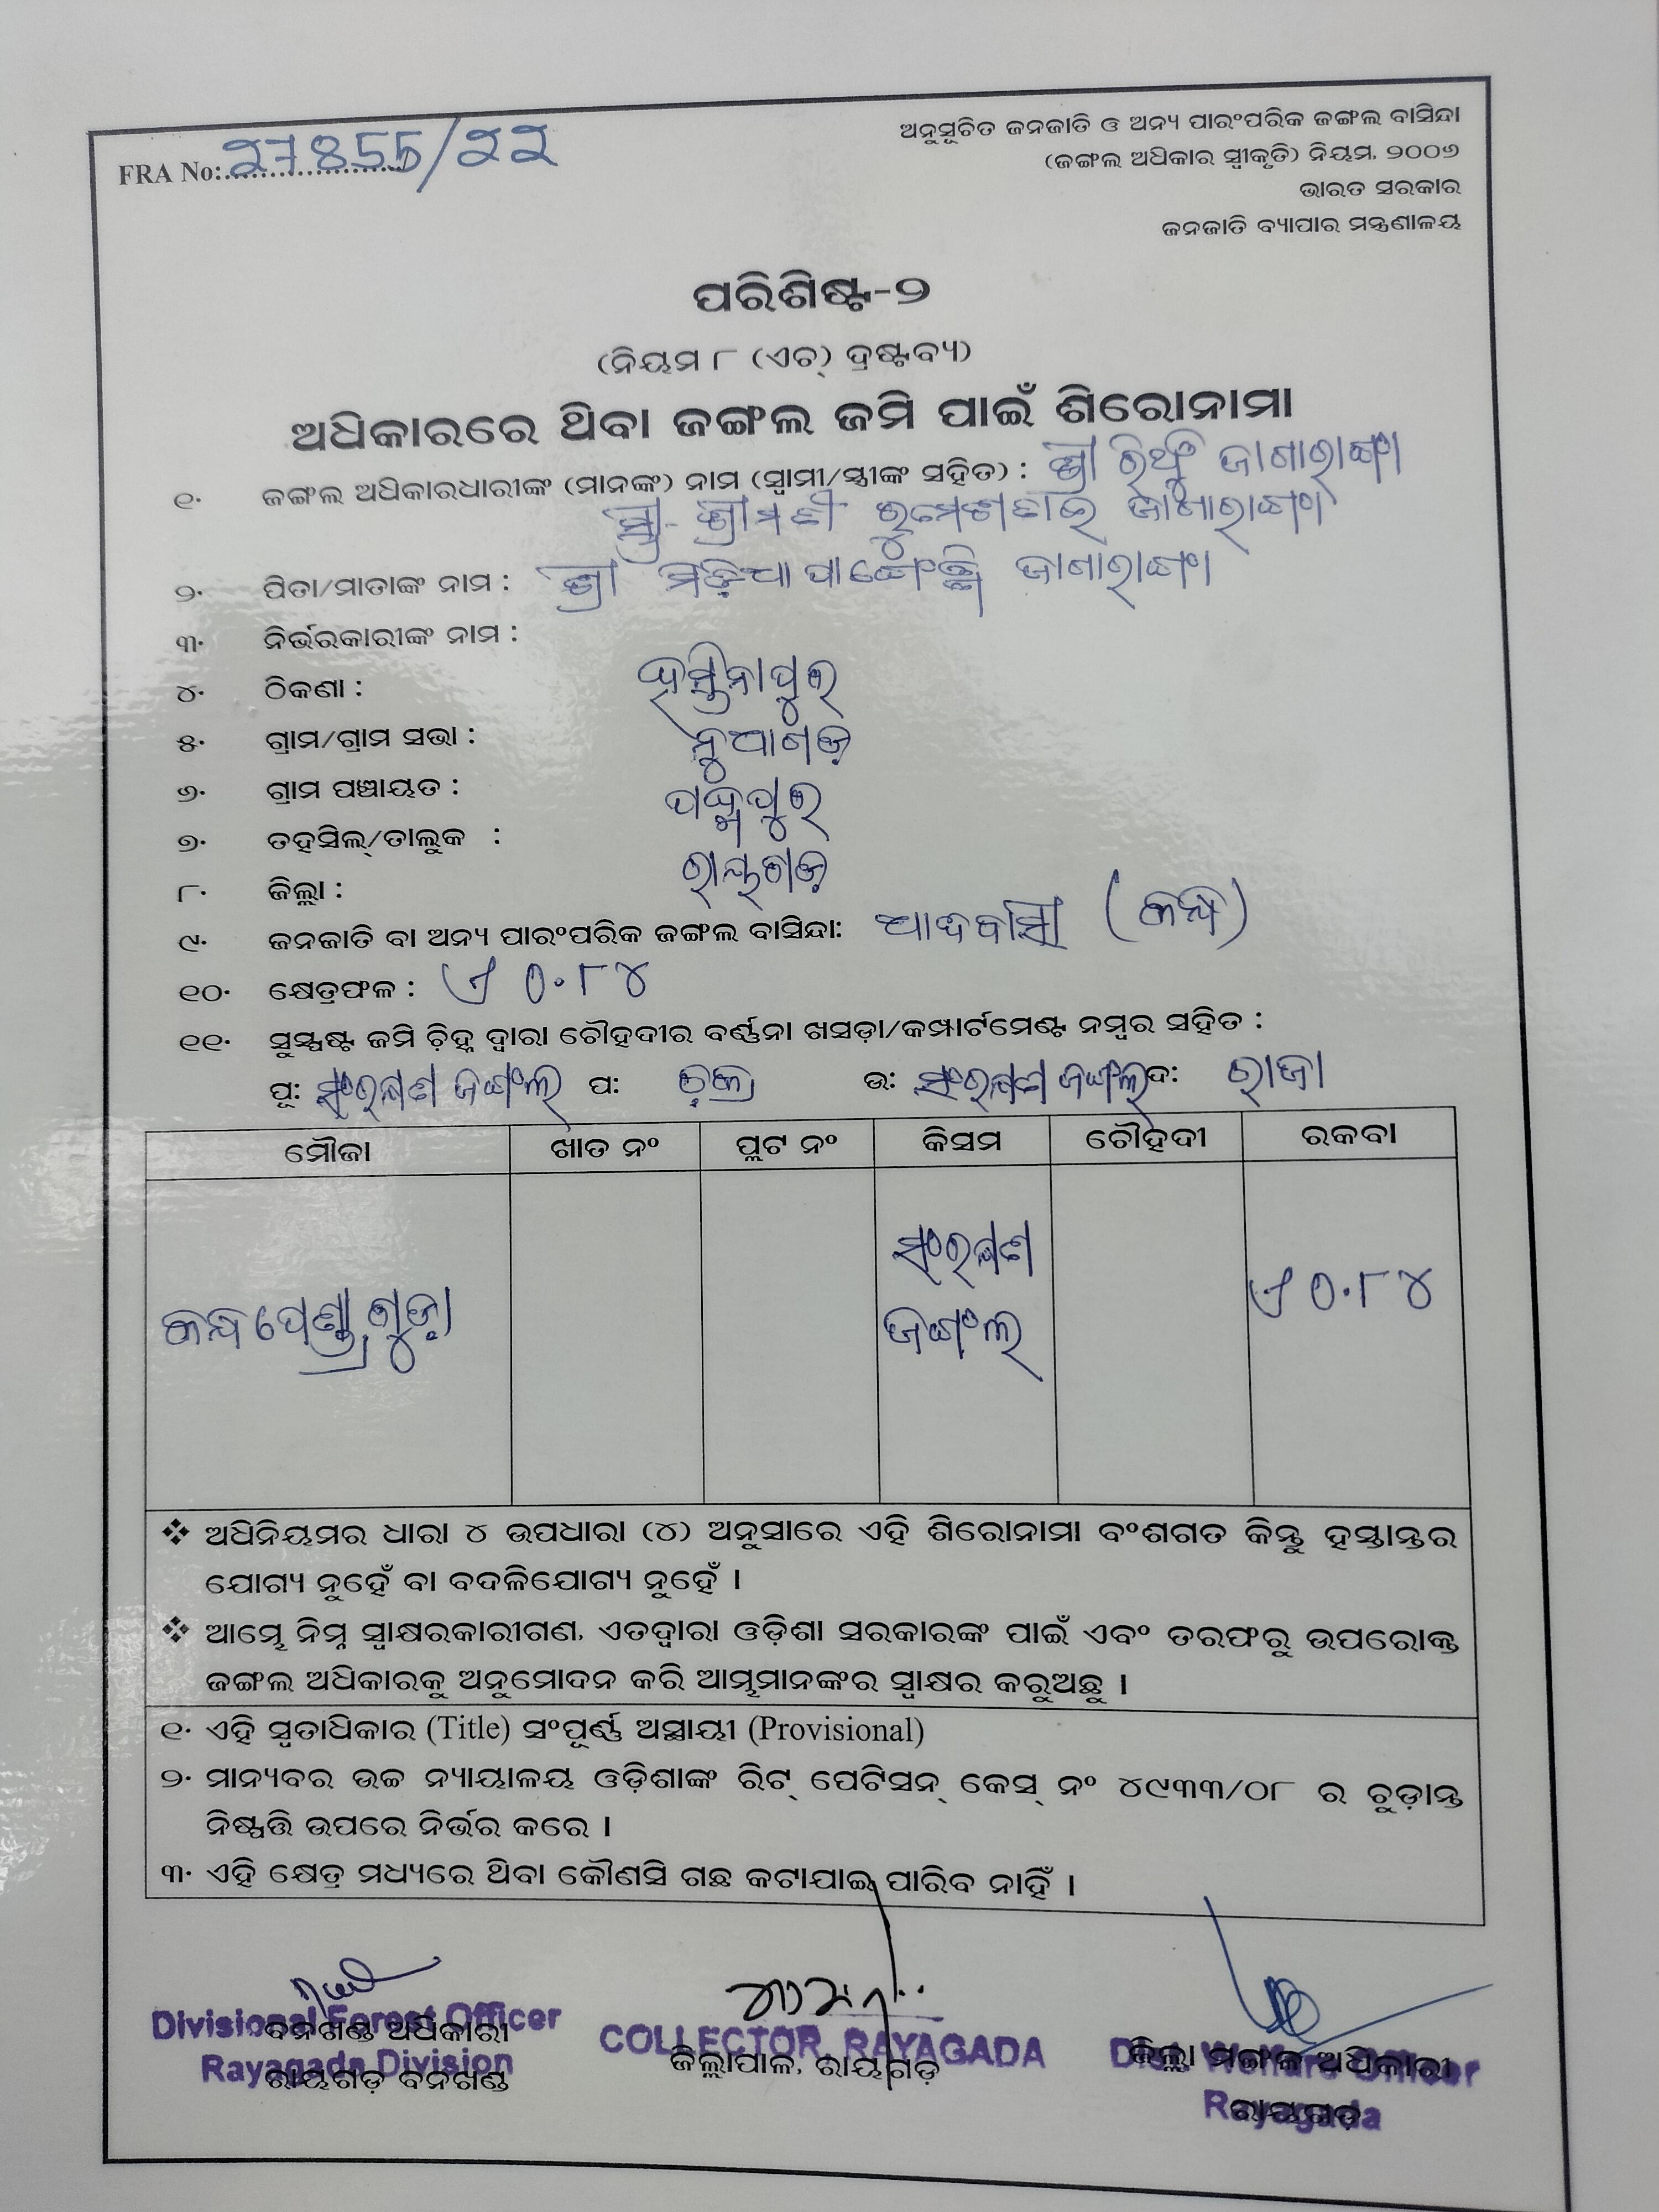 FRA No: 27855/22
ଅନୁସୂଚିତ ଜନଜାତି ଓ ଅନ୍ୟ ପାରଂପରିକ ଜଙ୍ଗଲ ବାସିନ୍ଦା
(ଜଙ୍ଗଲ ଅଧିକାର ସ୍ୱୀକୃତି) ନିୟମ, ୨୦୦୬
ଭାରତ ସରକାର
ଜନଜାତି ବ୍ୟାପାର ମନ୍ତ୍ରଣାଳୟ
ପରିଶିଷ୍ଟ-୨
(ନିୟମ ୮ (ଏଚ୍) ଦ୍ରଷ୍ଟବ୍ୟ)
ଅଧିକାରରେ ଥିବା ଜଙ୍ଗଲ ଜମି ପାଇଁ ଶିରୋନାମା
୧. ଜଙ୍ଗଲ ଅଧିକାରଧାରୀଙ୍କ (ମାନଙ୍କ) ନାମ (ସ୍ୱାମୀ/ସ୍ତ୍ରୀଙ୍କ ସହିତ) : ଶ୍ରୀ
ଶ୍ରୀମତୀ
୨. ପିତା/ମାତାଙ୍କ ନାମ : ଶ୍ରୀ
୩. ନିର୍ଭରକାରୀଙ୍କ ନାମ :
୪. ଠିକଣା : ହସ୍ତିନାପୁର
୫. ଗ୍ରାମ/ଗ୍ରାମ ସଭା : ନୁଆଗଡ଼
୬. ଗ୍ରାମ ପଞ୍ଚାୟତ : ପଦ୍ମପୁର
୭. ତହସିଲ୍/ତାଲୁକ : ରାୟଗଡ଼
୮. ଜିଲ୍ଲା :
୯. ଜନଜାତି ବା ଅନ୍ୟ ପାରଂପରିକ ଜଙ୍ଗଲ ବାସିନ୍ଦା: ଆଦିବାସୀ (କନ୍ଧ)
୧୦. କ୍ଷେତ୍ରଫଳ : ଏ ୦.୮୪
୧୧. ସୁସ୍ପଷ୍ଟ ଜମି ଚିହ୍ନ ଦ୍ୱାରା ଚୌହଦୀର ବର୍ଣ୍ଣନା ଖସଡ଼ା/କମ୍ପାର୍ଟମେଣ୍ଟ ନମ୍ବର ସହିତ :
ପୂ: ସଂରକ୍ଷଣ ଜଙ୍ଗଲ ପ: ଉ: ସଂରକ୍ଷଣ ଜଙ୍ଗଲ ଦ: ରାଜା
ମୌଜା ଖାତ ନଂ ପ୍ଲଟ ନଂ କିସମ ଚୌହଦୀ ରକବା
ସଂରକ୍ଷଣ
ଜଙ୍ଗଲ
ଏ ୦.୮୪
❖ ଅଧିନିୟମର ଧାରା ୪ ଉପଧାରା (୪) ଅନୁସାରେ ଏହି ଶିରୋନାମା ବଂଶଗତ କିନ୍ତୁ ହସ୍ତାନ୍ତର
ଯୋଗ୍ୟ ନୁହେଁ ବା ବଦଳିଯୋଗ୍ୟ ନୁହେଁ ।
❖ ଆମ୍ଭେ ନିମ୍ନ ସ୍ୱାକ୍ଷରକାରୀଗଣ, ଏତଦ୍ଦ୍ୱାରା ଓଡ଼ିଶା ସରକାରଙ୍କ ପାଇଁ ଏବଂ ତରଫରୁ ଉପରୋକ୍ତ
ଜଙ୍ଗଲ ଅଧିକାରକୁ ଅନୁମୋଦନ କରି ଆମ୍ଭମାନଙ୍କର ସ୍ୱାକ୍ଷର କରୁଅଛୁ ।
୧. ଏହି ସ୍ୱତାଧିକାର (Title) ସଂପୂର୍ଣ୍ଣ ଅସ୍ଥାୟୀ (Provisional)
୨. ମାନ୍ୟବର ଉଚ୍ଚ ନ୍ୟାୟାଳୟ ଓଡ଼ିଶାଙ୍କ ରିଟ୍ ପେଟିସନ୍ କେସ୍ ନଂ ୪୯୩୩/୦୮ ର ଚୁଡ଼ାନ୍ତ
ନିଷ୍ପତ୍ତି ଉପରେ ନିର୍ଭର କରେ ।
୩. ଏହି କ୍ଷେତ୍ର ମଧ୍ୟରେ ଥିବା କୌଣସି ଗଛ କଟାଯାଇ ପାରିବ ନାହିଁ ।
Divisional Forest Officer
ବନଖଣ୍ଡ ଅଧିକାରୀ
Rayagada Division
ରାୟଗଡ଼ ବନଖଣ୍ଡ
COLLECTOR, RAYAGADA
ଜିଲ୍ଲାପାଳ, ରାୟଗଡ଼
Dist. Welfare Officer
ଜିଲ୍ଲା ମଙ୍ଗଳ ଅଧିକାରୀ
Rayagada
ରାୟଗଡ଼